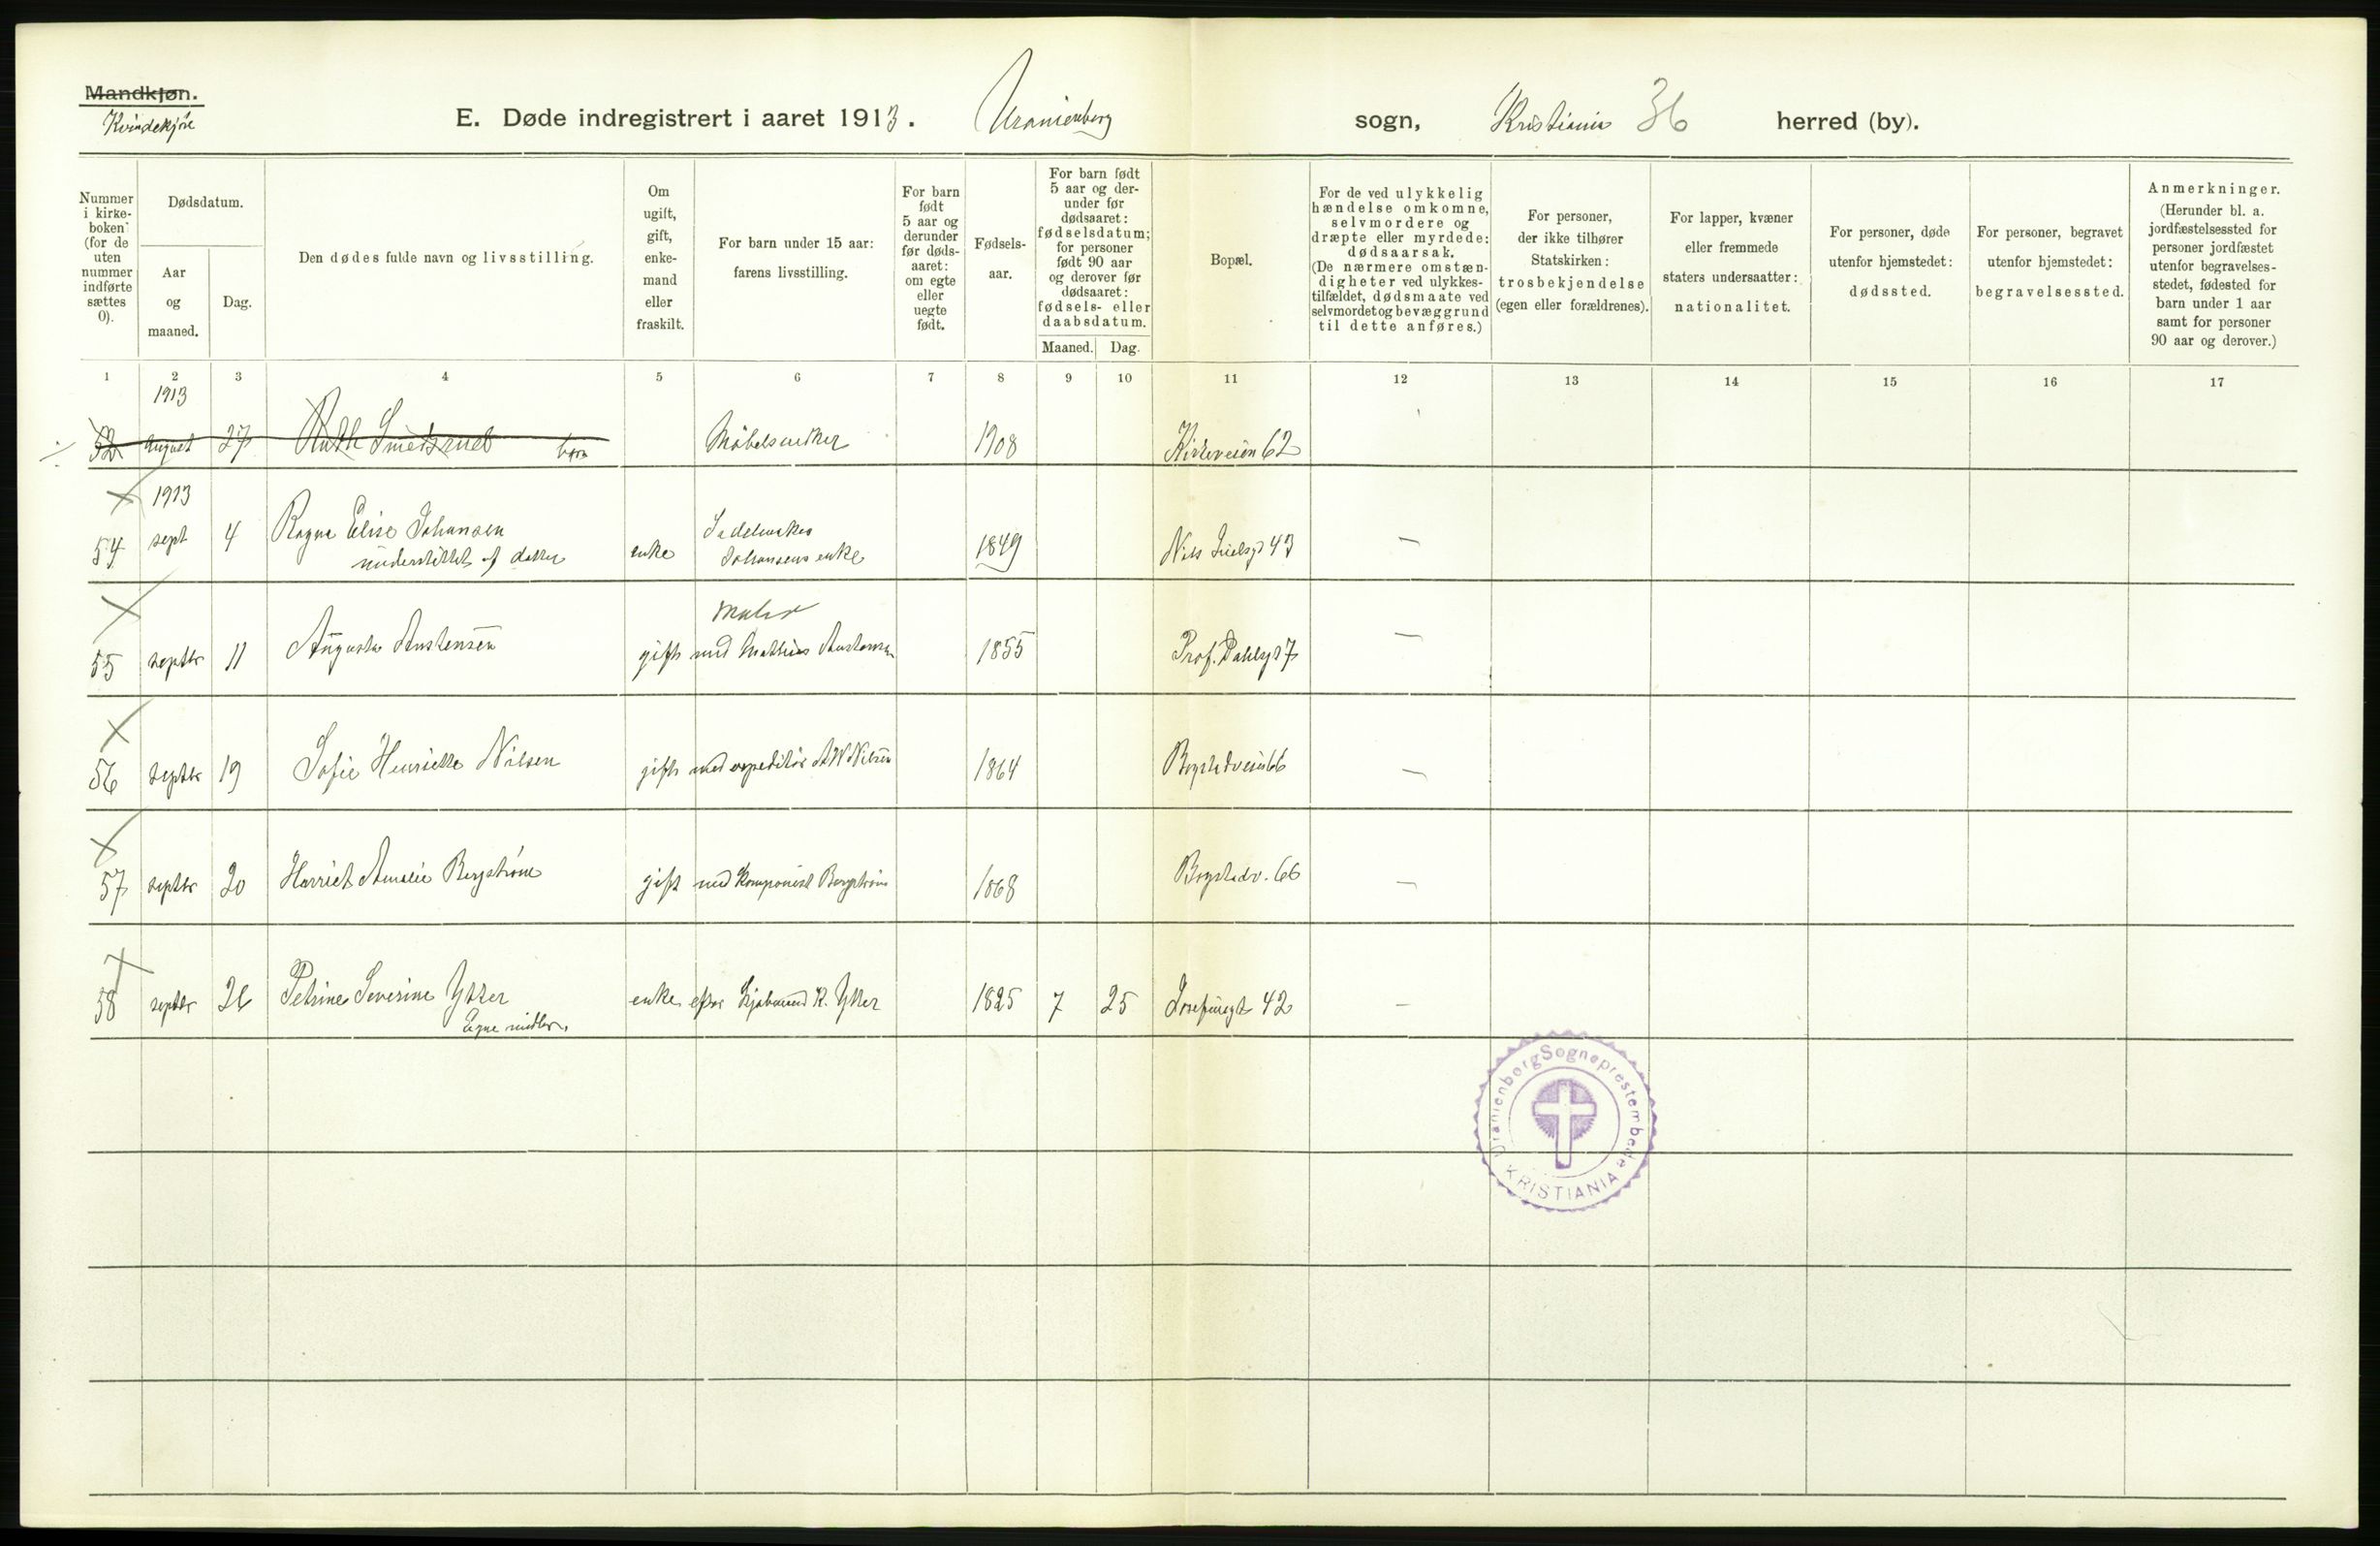 Mandkjøn.
Kvindekjøn
E. Døde indregistrert i aaret 1913. Uranienborg sogn, Kristiania 36 herred (by).
Nummer i kirke-boken (for de uten nummer indførte sættes 0).
Dødsdatum.
Aar og maaned.
Dag.
Den dødes fulde navn og livsstilling.
Om ugift, gift, enke-mand eller fraskilt.
For barn under 15 aar: farens livsstilling.
For barn født 5 aar og derunder før døds-aaret: om egte eller uegte født.
Fødsels-aar.
For barn født 5 aar og der-under før dødsaaret: fødselsdatum; for personer født 90 aar og derover før dødsaaret: fødsels- eller daabsdatum.
Maaned. Dag.
Bopæl.
For de ved ulykkelig hændelse omkomne, selvmordere og dræpte eller myrdede: dødsaarsak. (De nærmere omstæn-digheter ved ulykkes-tilfældet, dødsmaate ved selvmordet og bevæggrund til dette anføres.)
For personer, der ikke tilhører Statskirken: trosbekjendelse (egen eller forældrenes).
For lapper, kvæner eller fremmede staters undersaatter: nationalitet.
For personer, døde utenfor hjemstedet: dødssted.
For personer, begravet utenfor hjemstedet: begravelsessted.
Anmerkninger. (Herunder bl. a. jordfæstelsessted for personer jordfæstet utenfor begravelses-stedet, fødested for barn under 1 aar samt for personer 90 aar og derover.)
1 2 3 4 5 6 7 8 9 10 11 12 13 14 15 16 17
1913
52 August 27 Ruth Smedsrud barn Møbelsnekker 1908 Kirkeveien 62
1913
54 sept 4 Ragna Elise Johansen enke Sadelmaker 1849 Niels Juelsgt 43 —
understøttet af datter Johansens enke
Maler
55 septbr 11 Augusta Austensen gift med Mathias Austensen 1855 Prof. Dahlsgt 7 —
56 septbr 19 Sofie Henriette Nilsen gift med expeditør A W Nilsen 1864 Bogstadveien 66 —
57 septbr 20 Harriet Amalie Bergstrøm gift med Komponist Bergstrøm 1868 Bogstadv. 66 —
58 septbr 26 Petrine Severine Ytter enke efter Kjøbmand K. Ytter 1825 7 25 Josefinegt 42 —
Egne midler.
Uranienborg Sogneprestembede
KRISTIANIA